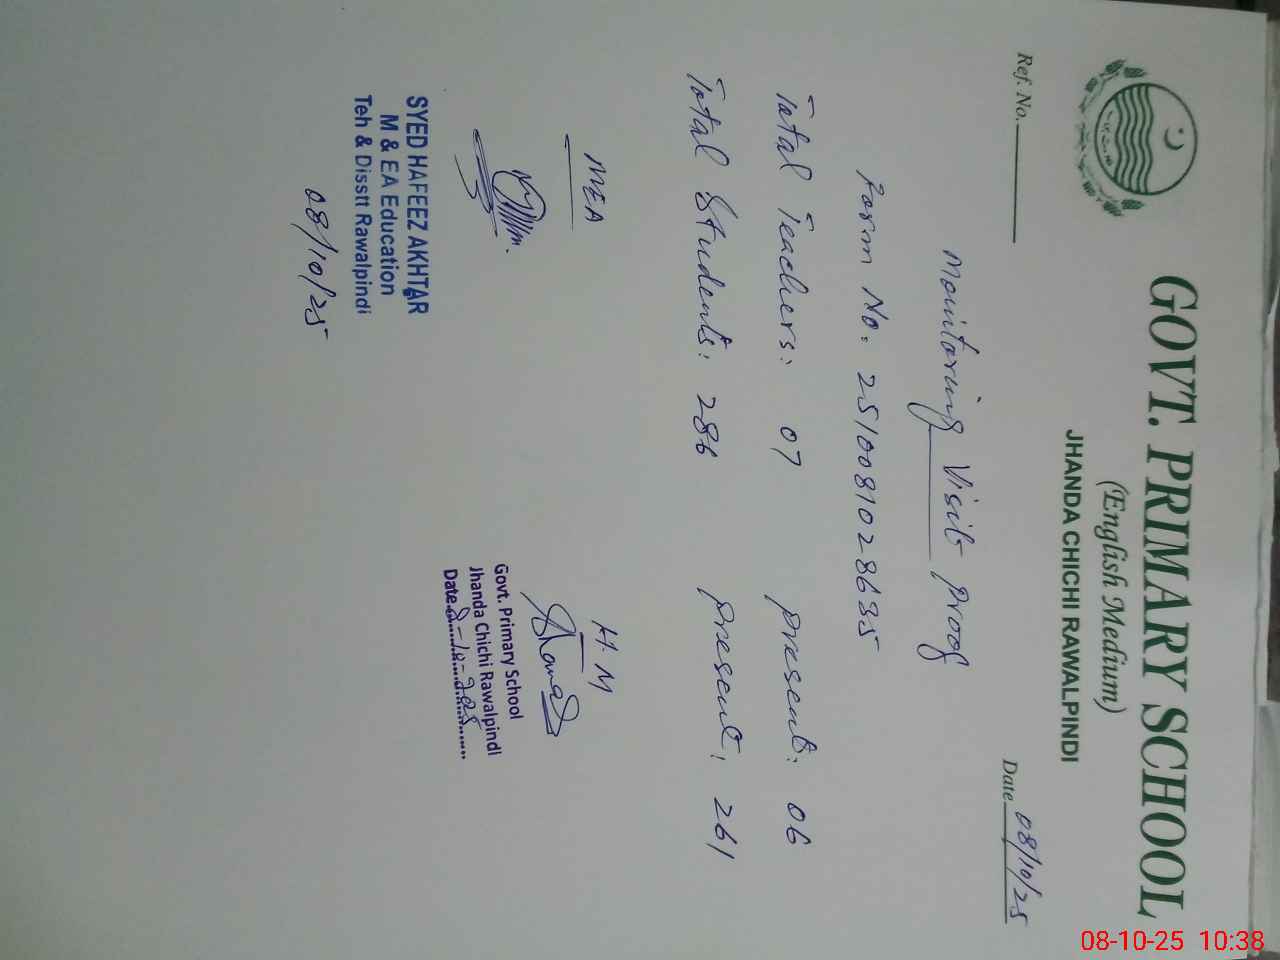 GOVT. PRIMARY SCHOOL
(English Medium)
JHANDA CHICHI RAWALPINDI
Ref. No.
Date 08/10/25
Monitoring Visit Proof
Form No. 2510081028635
Total Teachers: 07 present: 06
Total Students: 286 present: 261
MEA
H.M
SYED HAFEEZ AKHTAR
M & EA Education
Teh & Disstt Rawalpindi
08/10/25
Govt. Primary School
Jhanda Chichi Rawalpindi
Date
08-10-25 10:38